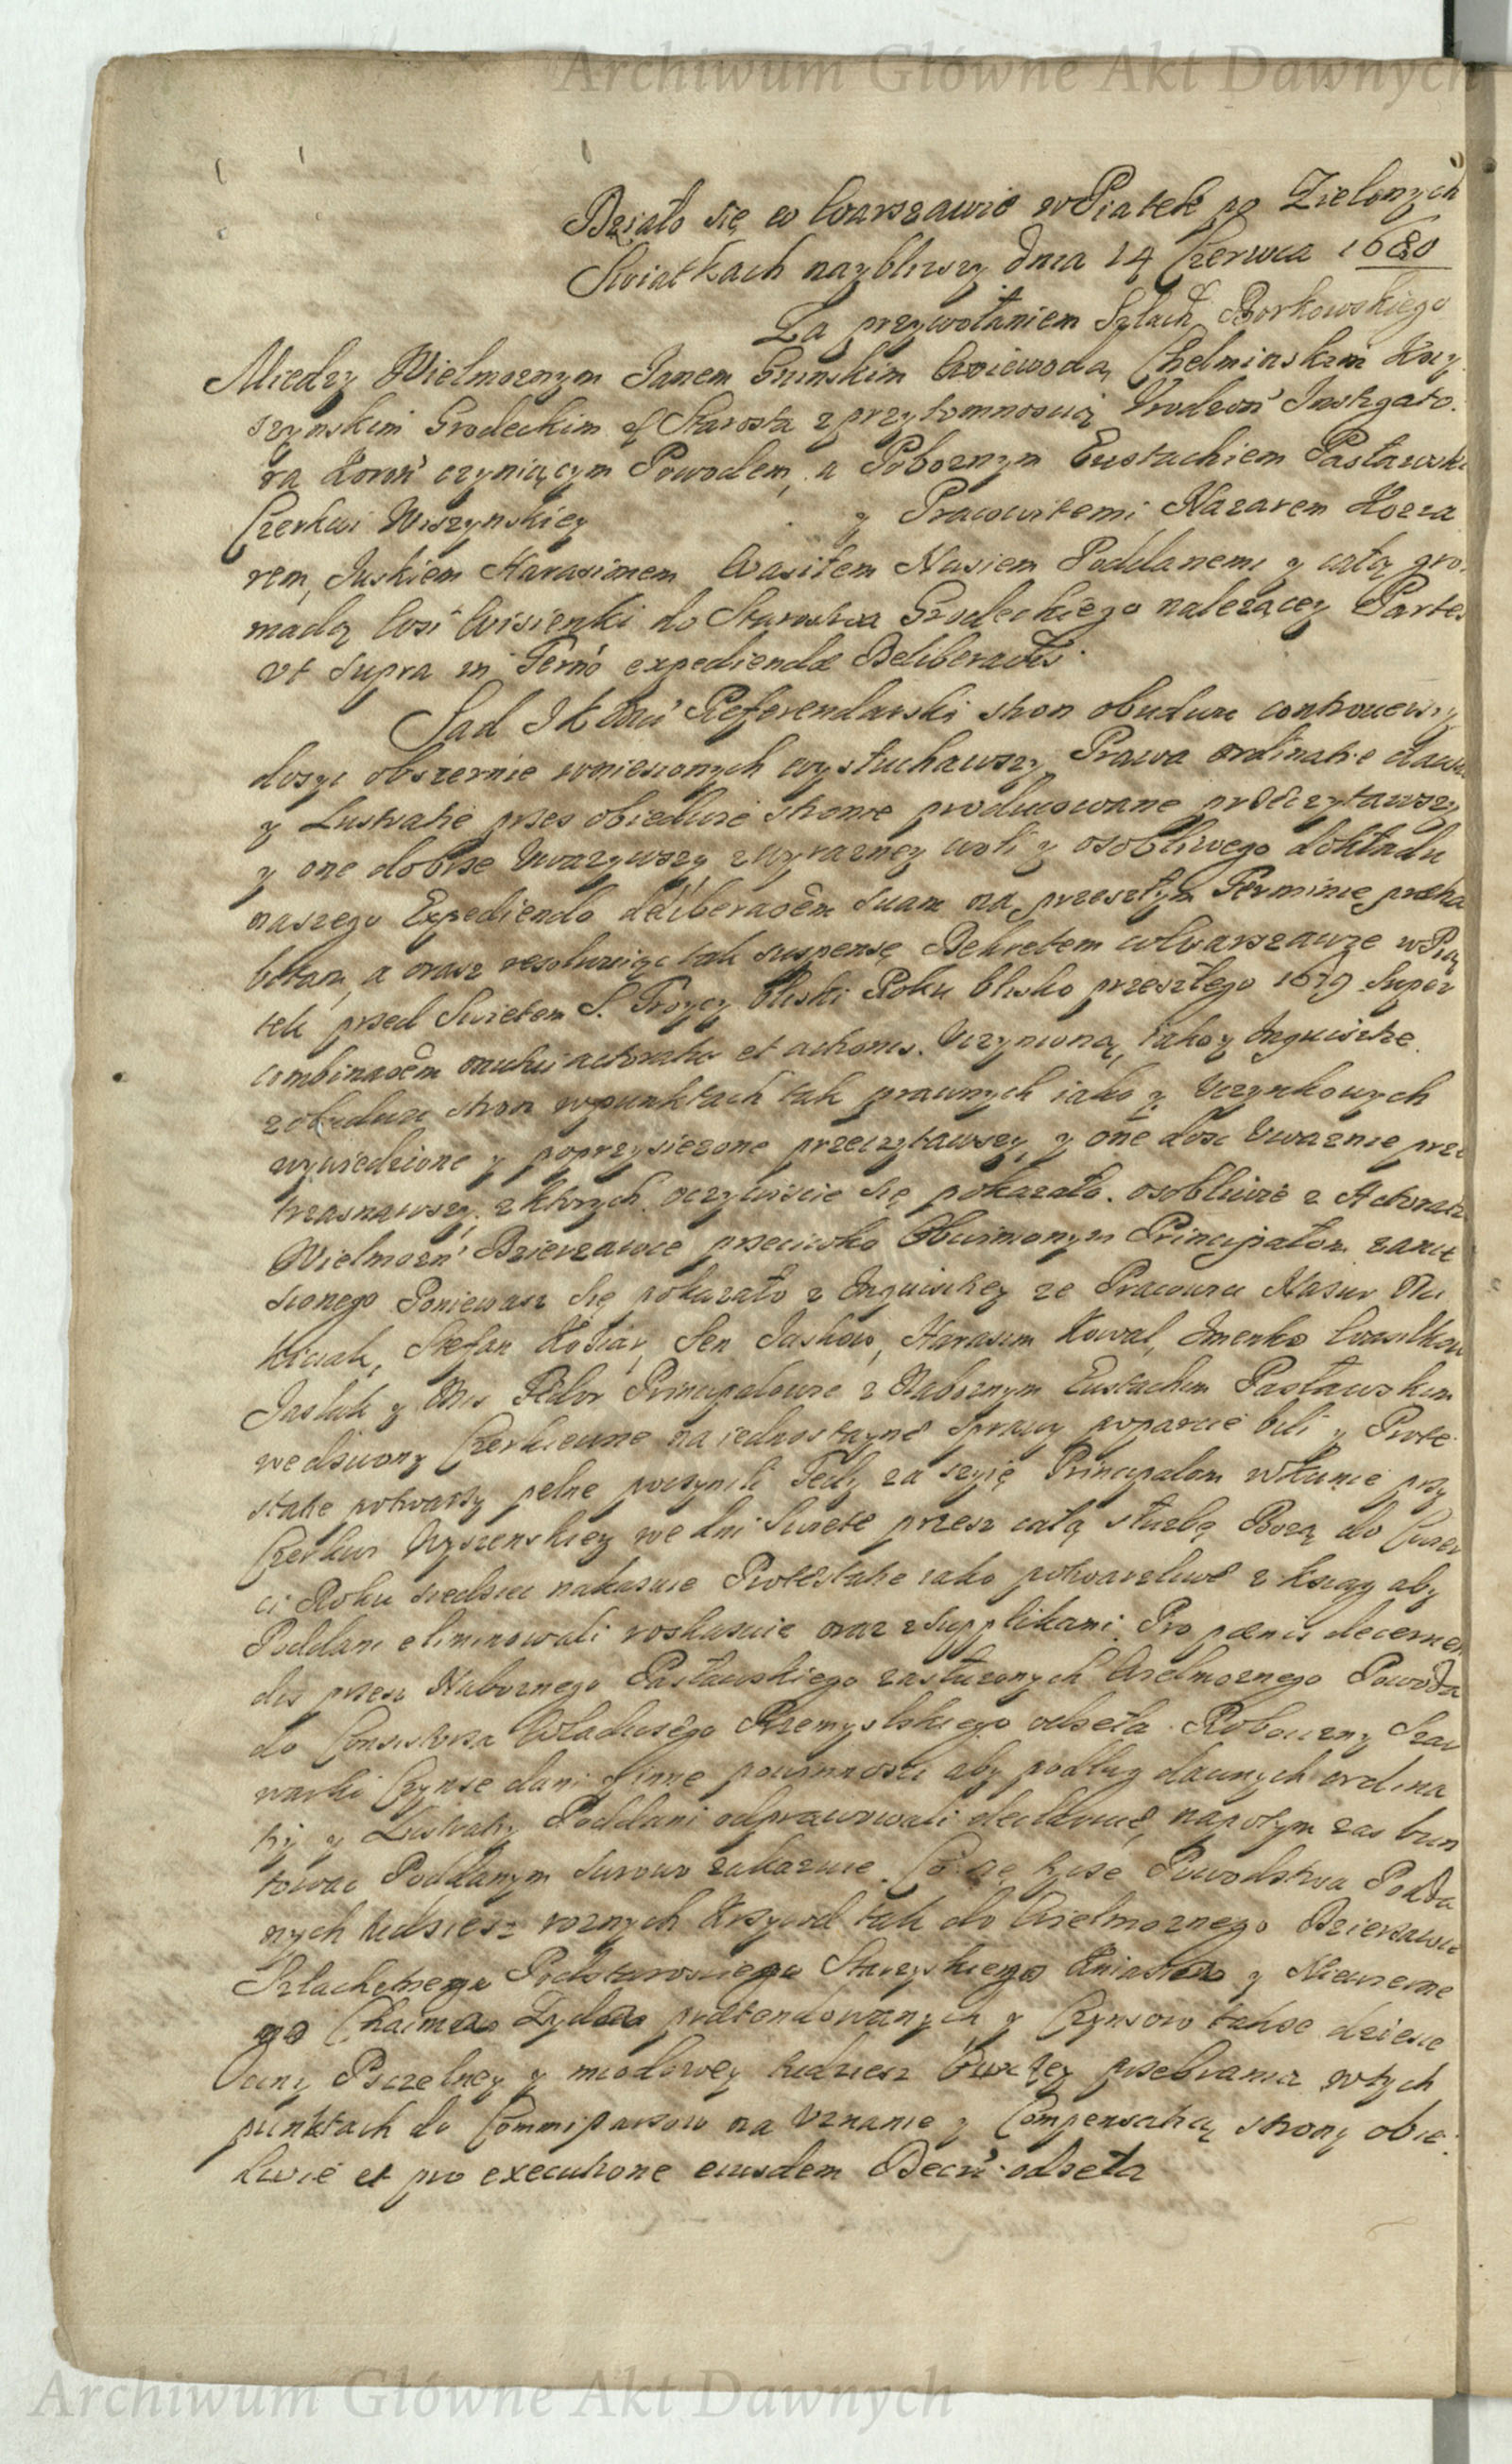 Archiwum Główne Akt Dawnych
Działo się w Warszawie w Piatek po Zielonych
Swiatkach nayblizszy dnia 14 Czerwca 1680
Za przywołaniem Szlach Borkowskiego
Miedzy Wielmoznym Janem Gninskim Woiewodą Chelminskim Kny
szynskim Grodeckim & Starostą z przytomnoscią Vrodzoń Instigato
ra Koroń czyniącym Powodem, a Poboznym Eustachiem Pasławski
Czerkwi Wiszynskiey y Pracowitemi Nazarem Kozza
rem, Juskiem Harasimem Wasilem Nasiem Poddanemi y całą gro
madą Wsi Wisienki do Starostwa Grodeckiego nalezącey Partes
vt supra in Termo expediendæ Deliberaõis
Sąd JKMci Referendarski stron obudwu controuersyi
dosyc obszernie wniesionych wysłuchawszy Prawa ordinatie dawne
y Lustratie przez obiedwie strone producowane przeczytawszy
y one dobrze vwazywszy z wyrazney woli y osobliwego dokładu
naszego Expediendo deliberaõem suam na przeszłym Terminie præha
bitam, a oraz resolwuiąc tak suspensę Dekretem w Warszawie w Pią
tek przed Swietem S. Troycy bliski Roku blisko przeszłego 1679 Super
combinaõem actoratus et actionis Vczynioną, iako y Inquisitie
z obudwu stron w punktach tak prawnych iako y Vczynkowych
wywiedzione y poprzysiezone przeczytawszy, y one dosc Vwaznie prze
trzasnawszy, z ktorych oczywiscie się pokazało osobliwie z Actoratu
Wielmozn Dzierzawce przeciwko Obwinionym Principałom zanie
sionego Poniewasz się pokazało z Inquisitiey ze Pracowici Nazar
Stefan Kotiar, Sen Jaskow, Harasim Kowal, Jmenko Wasilkow
Jasluk y Fedor Principalowie z Naboznym Eustachim Pasławskim
we dzwony Czerkiewne na iednostayne sprawy poparcie bili y Prote
statie potwarzy pełne poczynili Tedy za szyię Principalom w Kunie przy
Czerkwi Wyszenskiey we dni Swiete przesz całą słuzbę Bozą do Cwier
ci Roku siedziec nakazuie Protestatie iako potwarzliwe z ksiąg aby
Poddani eliminowali roskazuie oraz z supplikami Pro pœnis decernen
dis przesz Naboznego Pasławskiego zasłuzonych Wielmoznego Powoda
do Consistorza Władiczego Przemyslskiego odseła. Robocizny Szar
warki Czynsze dani y inne powinnosci aby podług dawnych ordina
tiy y Lustratiy Poddani odprawowali deciduie, napotym zas bun
towac Poddanym surowo zakazuie. Co się tycze Powodstwa Podda
nych tudziesz roznych Krzywd tak do Wielmoznego Dzierzawce
Szlachetnego Podstarosciego Starzyskiego y Niewierne
go Chaima Zyda prætendowanych y Czynszow takze dziesie
ciny Pszelney y miodowey tudziesz Owczey przebrania w tych
punktach do Commissarzow na Vznanie y Compensatią strony obie
dwie et pro executione eiusdem Decri odseła
Archiwum Główne Akt Dawnych